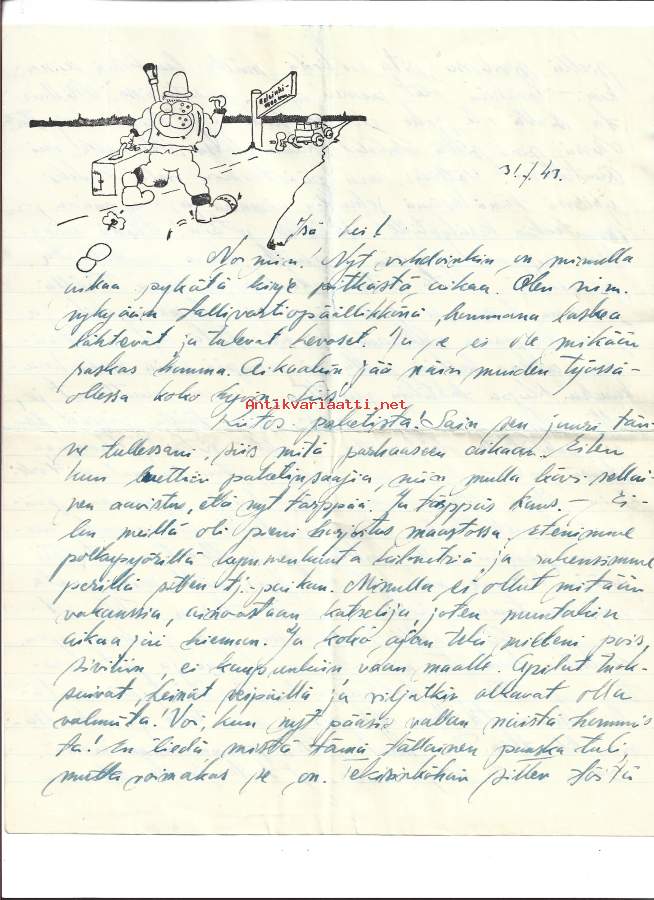 Helsinki-
31.7.43.
Isä hei!
No niin. Nyt vihdoinkin on minulla
aikaa pyhätä kirje pitkästä aikaa. Olen nim.
nykyään tallivartiopäällikkönä, hommana laskea
lähtevät ja tulevat hevoset. Ja se ei ole mikään
raskas homma. Aikaakin jää näin muiden työssä-
ollessa koko hyvin. Siis!
Kiitos paketista! Sain sen juuri tän-
ne tullessani, siis mitä parhaaseen aikaan. Eilen
kun luettiin paketinsaajia, niin mulla kävi sellai-
nen aavistus, että nyt tärppää. Ja tärppäs kans. — Ei-
len meillä oli pieni harjoitus maastossa. Etenimme
polkupyörillä kymmenkunta kilometriä, ja rakensimme
perillä sitten tj.-paikan. Minulla ei ollut mitään
vakanssia, ainoastaan katselija, joten muutakin
aikaa jäi hieman. Ja koko ajan teki mieleni pois,
siviiliin, ei kaupunkiin vaan maalle. Apilat tuok-
suivat, heinät seipäillä ja viljatkin alkavat olla
valmiita. Voi, kun nyt pääsis vallan näistä hommis
ta! En tiedä, mistä tämä tällainen puuska tuli,
mutta voimakas se on. Tekisinköhän sitten töitä
Antikvariaatti.net